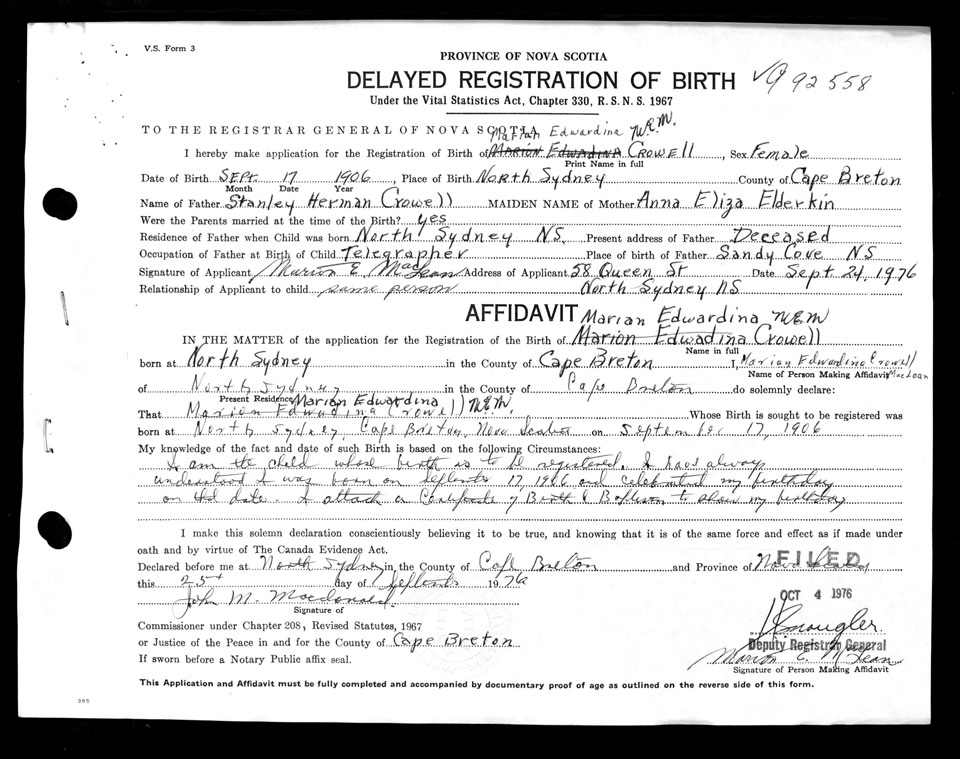 V.S. Form 3
PROVINCE OF NOVA SCOTIA
DELAYED REGISTRATION OF BIRTH 92558
Under the Vital Statistics Act, Chapter 330, R.S.N.S. 1967
TO THE REGISTRAR GENERAL OF NOVA SCOTIA Marian Edwardina M.E.M.
I hereby make application for the Registration of Birth of MARION EDWADINA CROWELL, Sex Female
Print Name in full
Date of Birth SEPT. 17 1906, Place of Birth NORTH SYDNEY County of Cape Breton
Month Date Year
Name of Father Stanley Herman Crowell MAIDEN NAME of Mother Anna Eliza Elderkin
Were the Parents married at the time of the Birth? yes
Residence of Father when Child was born North Sydney NS. Present address of Father Deceased
Occupation of Father at Birth of Child Telegrapher Place of birth of Father Sandy Cove NS
Signature of Applicant Marion E. MacLean Address of Applicant 58 Queen St Date Sept 24, 1976
Relationship of Applicant to child same person North Sydney NS
AFFIDAVIT Marian Edwardina M.E.M
IN THE MATTER of the application for the Registration of the Birth of Marion Edwadina Crowell
Name in full
born at North Sydney in the County of Cape Breton I, Marian Edwardina Crowell
Name of Person Making Affidavit MacLean
of North Sydney in the County of Cape Breton do solemnly declare:
Present Residence Marian Edwardina
That Marion Edwadina Crowell M.E.M. Whose Birth is sought to be registered was
born at North Sydney, Cape Breton, Nova Scotia on September 17, 1906
My knowledge of the fact and date of such Birth is based on the following Circumstances:
I am the child whose birth is to be registered. I have always
understood I was born on September 17, 1906 and celebrated my birthday
on that date. I attach a Certificate of Birth & Baptism to show my birthday
I make this solemn declaration conscientiously believing it to be true, and knowing that it is of the same force and effect as if made under
oath and by virtue of The Canada Evidence Act.
Declared before me at North Sydney in the County of Cape Breton and Province of Nova Scotia
FILED
this 25th day of September 1976
OCT 4 1976
John M. Macdonald
Signature of
Commissioner under Chapter 208, Revised Statutes, 1967
or Justice of the Peace in and for the County of Cape Breton
Deputy Registrar General
If sworn before a Notary Public affix seal.
Marion E. McLean
Signature of Person Making Affidavit
This Application and Affidavit must be fully completed and accompanied by documentary proof of age as outlined on the reverse side of this form.